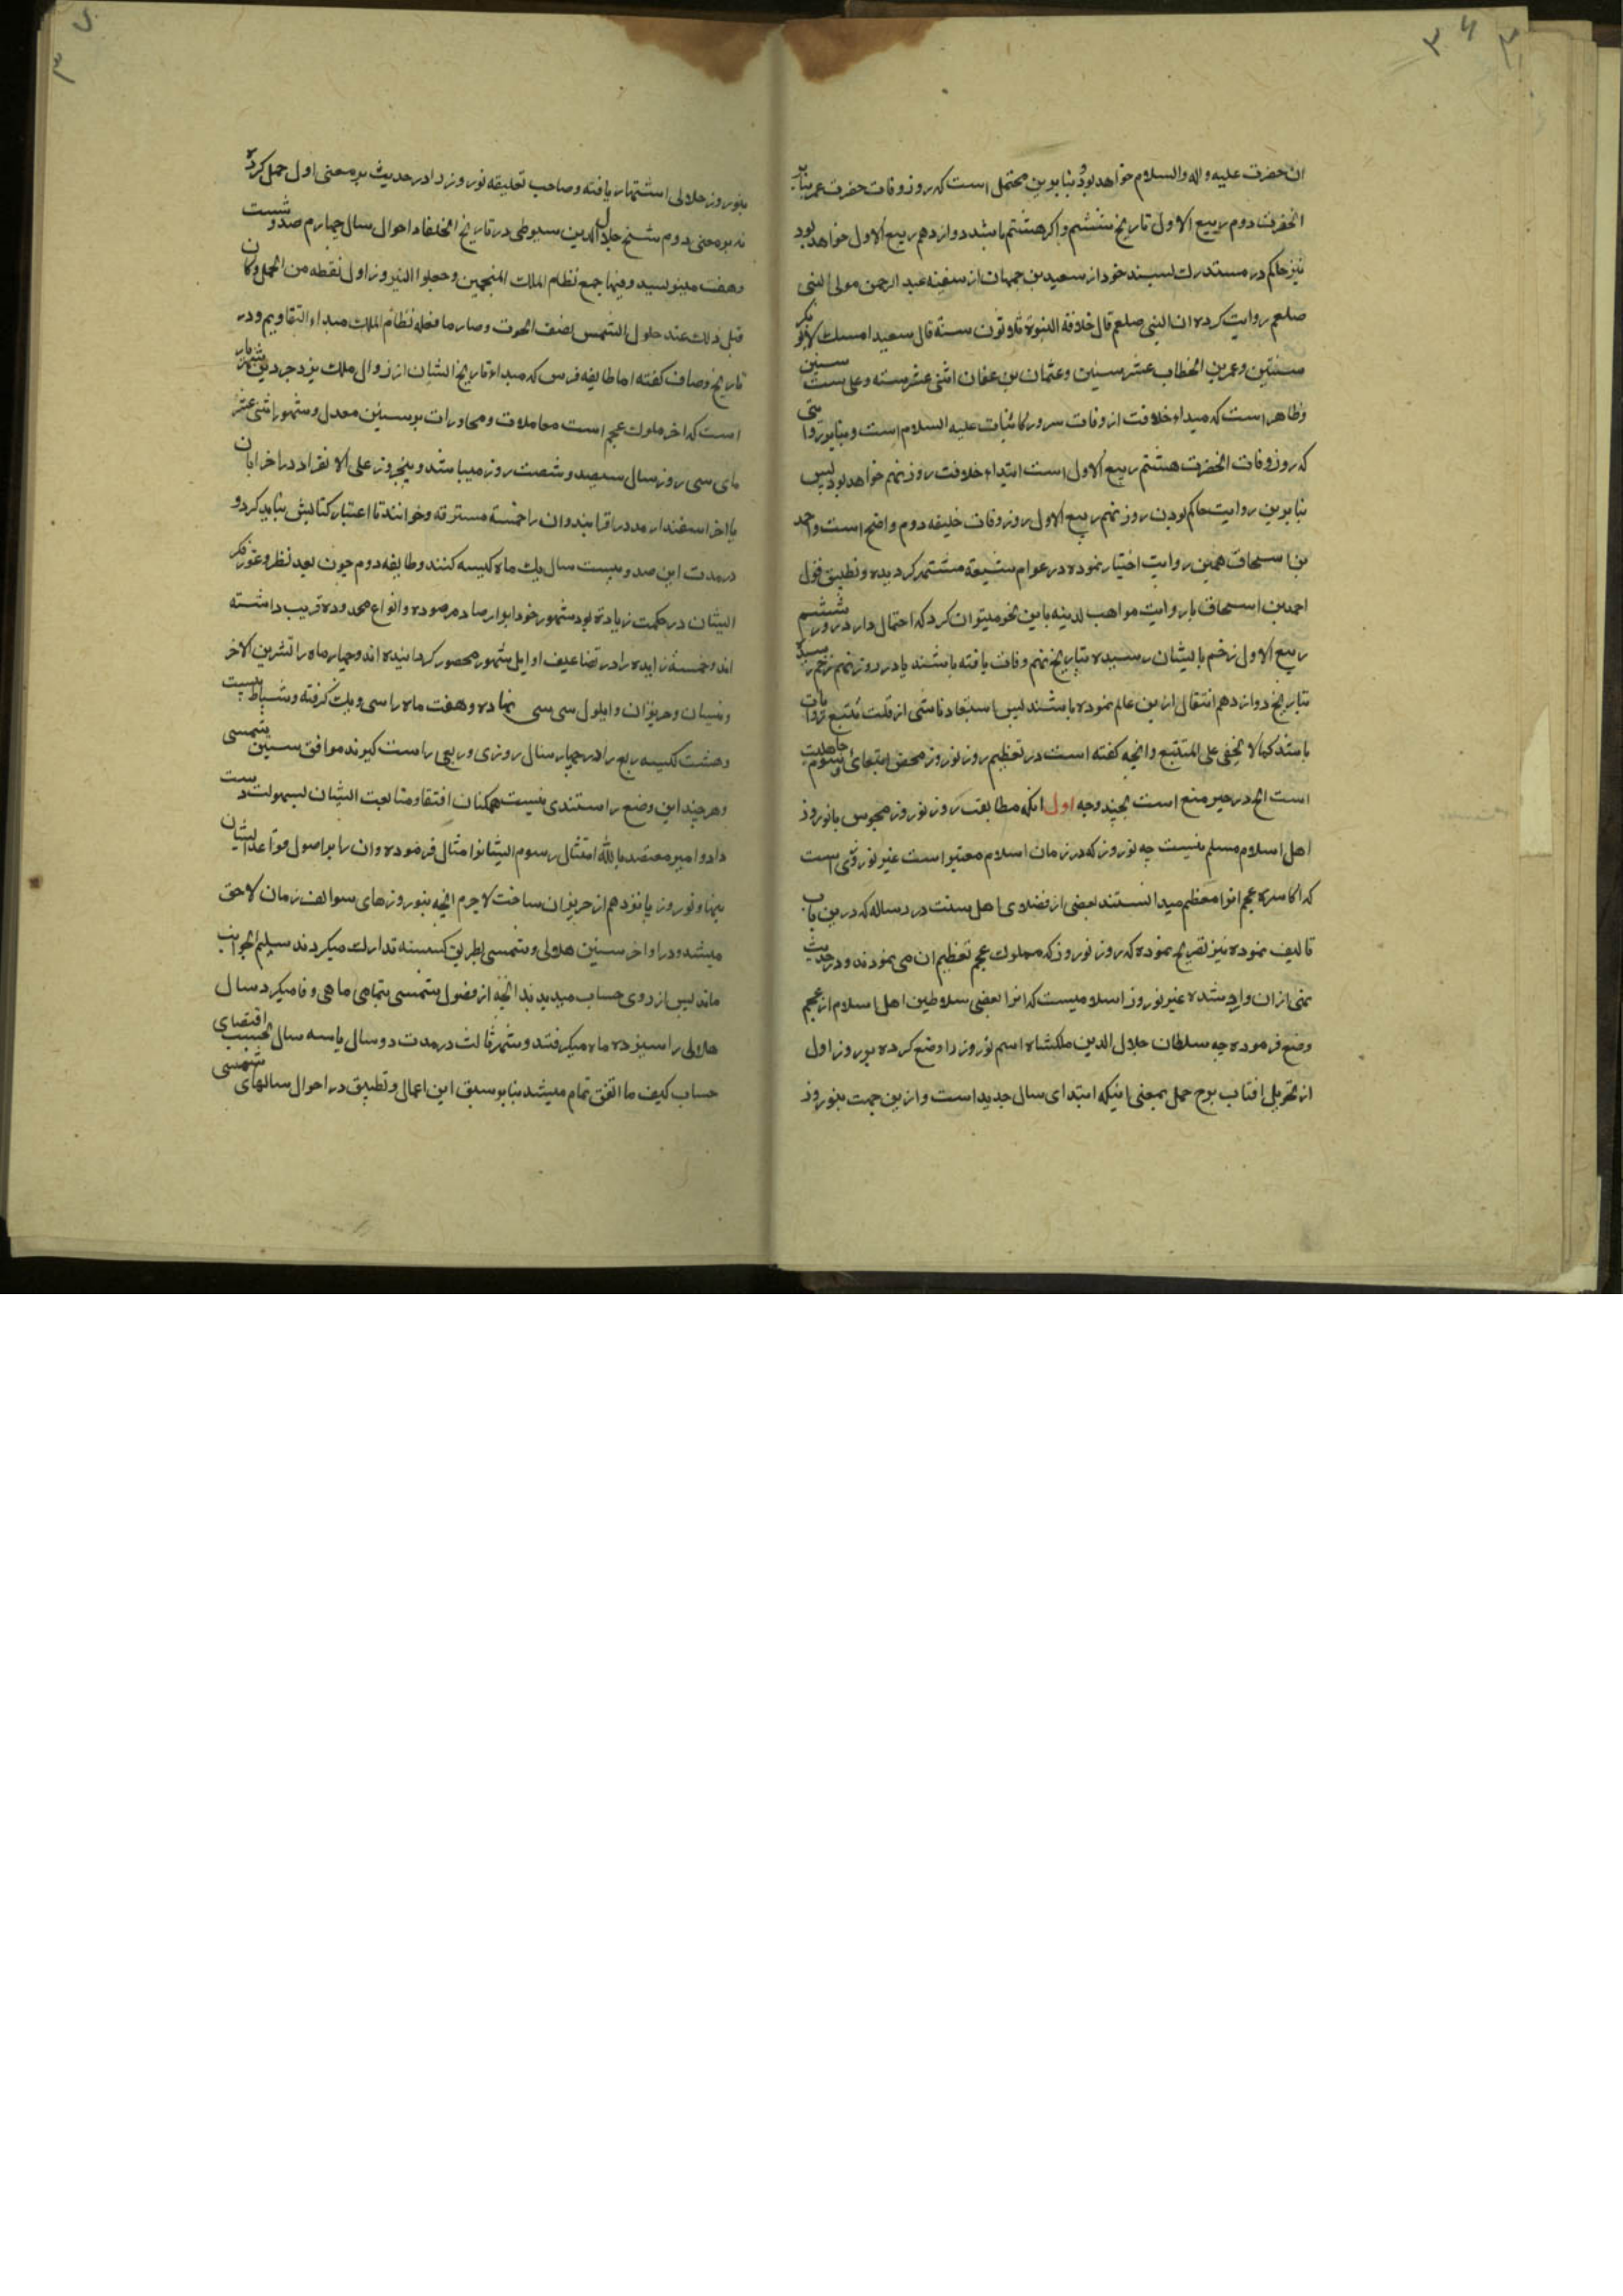 ۳۶
ان حضرت علیه و اله والسلام خواهد بود بنا برین محتمل است که روز وفات حضرت عمر بنابر
انحضرت دوم ربیع الاول تاریخ ششم و اکر هشتم باشد دوازدهم ربیع الاول خواهد بود
نیز حاکم در مستدرک بسند خود از سعید بن جمهان از سفینه عبد الرحمن مولی النبی
صلعم روایت کرده ان النبی صلعم قال خلافة النبوة ثلاثون سنة قال سعید امسک لابی بکر
سنتین و عمر بن الخطاب عشر سنین و عثمان بن عفان اثنی عشر سنه و علی ست سنین
و ظاهر است که مبداء خلافت از وفات سرور کائنات علیه السلام است و بنا بر روایتی
که روز وفات انحضرت هشتم ربیع الاول است ابتداء خلافت روز نهم خواهد بود پس
بنا برین روایت حاکم بودن روز نهم ربیع الاول روز وفات خلیفه دوم واضح است و احمد
بن اسحاق همین روایت اختیار نموده در عوام شیعه مشتهر کردیده و تطبیق قول
احمد بن اسحاق با روایت مواهب لدینه باین نحو میتوان کرد که احتمال دارد در روز ششم
ربیع الاول زخم بایشان رسیده بتاریخ نهم وفات یافته باشند یا در روز نهم زخم رسیده
بتاریخ دوازدهم انتقال ازین عالم نموده باشند پس استبعاد ناشی از قلت تتبع روایات
باشد کما لا یخفی علی المتتبع و انچه کفته است در تعظیم روز نوروز محض ابتغائ رسوم جاهلیت
است الخ در حیز منع است بچند وجه اول انکه مطابقت روز نوروز مجوس با نوروز
اهل اسلام مسلم نیست چه نوروز که در زمان اسلام معتبر است غیر نوروزی است
که اکاسره عجم انرا معظم میدانستند بعضی از فضلای اهل سنت در رساله که درین باب
تالیف نموده نیز تصریح نموده که روز نوروز که مملوک عجم تعظیم ان می نمودند و در حدیث
نهی ازان وارد شده غیر نوروز اسلامیست که انرا بعضی سلاطین اهل اسلام از عجم
وضع فرموده چه سلطان جلال الدین ملکشاه اسم نوروز را وضع کرده بر روز اول
از تحویل افتاب ببرج حمل بمعنی اینکه ابتدای سال جدید است و ازین جهت بنوروز
بنوروز جلالی اشتهار یافته و صاحب تعلیقه نوروز را در حدیث بر معنی اول حمل کرده
نه بر معنی دوم شیخ جلال الدین سیوطی در تاریخ الخلفا در احوال سال چهارم صد و شست
و هفت مینویسد و فیها جمع نظام الملک المنجمین و جعلوا النیروز اول نقطه من الحمل و کان
قبل ذلک عند حلول الشمس نصف الحوت و صار ما فعله نظام الملک مبداء التقاویم و در
تاریخ وصاف کفته اما طایفه فرس که مبداء تاریخ ایشان از زوال ملک یزدجرد بن شهریار
است که اخر ملوک عجم است معاملات و محاورات بر سنین معدل و شهور اثنی عشر
مای سی روز سال سیصد و شصت روز میباشد و پنجروز علی الانفراد در اخر ابان
یا اخر اسفندارمد در افزایند و ان را خمسه مسترقه خوانند تا اعتبار کتابش بناید کرد و
در مدت این صد و بیست سال یک ماه کبیسه کنند و طایفه دوم چون بعد نظر و غور فکر
ایشان در حکمت زیاده بود شهور خود ابوار صاد مرصوده و انواع محدوده قریب داشته
اند و خمسه زایده را در تضاعیف اوایل شهور محصور کردانیده اند و چهار ماه را تشرین الاخر
و نیسان و حزیران و ایلول سی سی نهاده و هفت ماه را سی و یک کرفته و شباط بیست
و هشت کبیسه ربع را در چهار سال روزی و ربعی راست کیرند موافق سنین شمسی
و هر چند این وضع را مستندی نیست همکنان اقتفا و متابعت ایشان بسهولت دست
داد و امیر معتضد بالله امتثال رسوم ایشانرا مثال فرموده و ان را بر اصول قواعد ایشان
بنهاد نوروز یانزدهم از حزیران ساخت لاجرم انچه بنوروزهای سوالف زمان لاحق
میشد و در اواخر سنین هلالی و شمسی بطریق کبیسه تدارک میکردند سلیم الجوانب
ماند پس از روی حساب میدیدند انچه از فصول شمسی بتمامی ماهی وفا میکرد سال
هلالی را سیزده ماه میکرفتند و شهر ثالث در مدت دو سال یا سه سال بحسب اقتضای
حساب کیف ما اتفق تمام میشد بنا بر سبق این اعمال و تطبیق در احوال سالهای شمسی